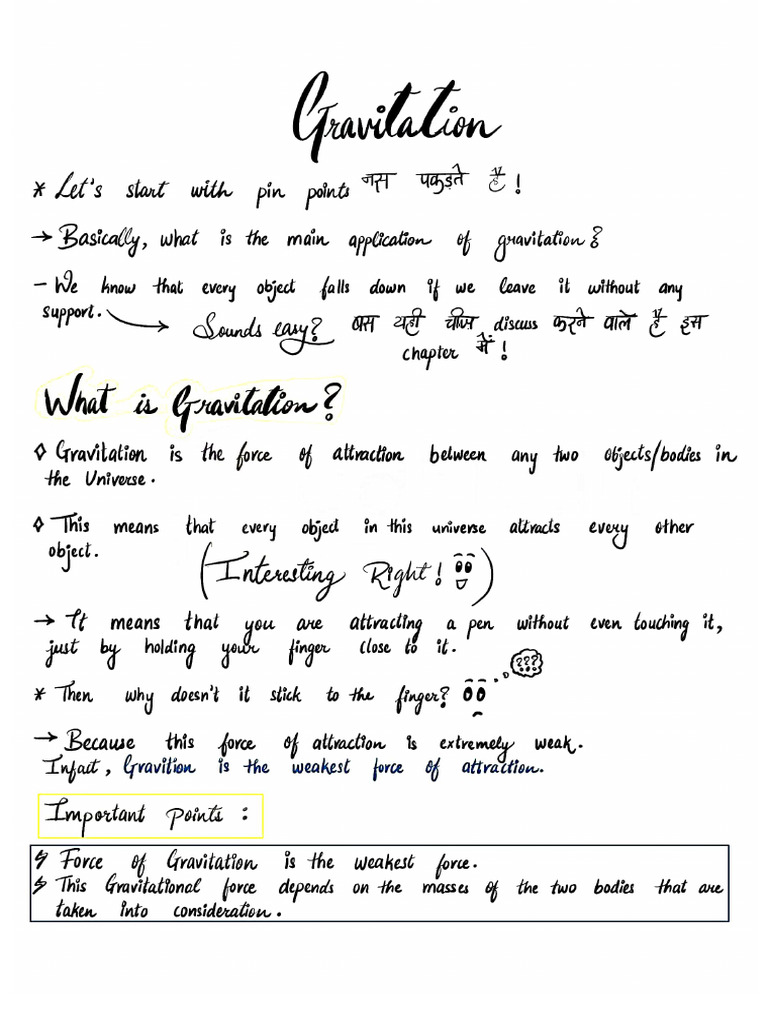 Gravitation
* Let's start with pin points नस पकड़ते है !
→ Basically, what is the main application of gravitation?
- We know that every object falls down if we leave it without any
support. → Sounds easy? बस यही चीज discuss करने वाले है इस
chapter में !
What is Gravitation?
◊ Gravitation is the force of attraction between any two objects/bodies in
the Universe.
◊ This means that every object in this universe attracts every other
object.
(Interesting Right!)
→ It means that you are attracting a pen without even touching it,
just by holding your finger close to it.
???
* Then why doesn't it stick to the finger?
→ Because this force of attraction is extremely weak.
Infact, Gravition is the weakest force of attraction.
Important points :
Force of Gravitation is the weakest force.
This Gravitational force depends on the masses of the two bodies that are
taken into consideration.